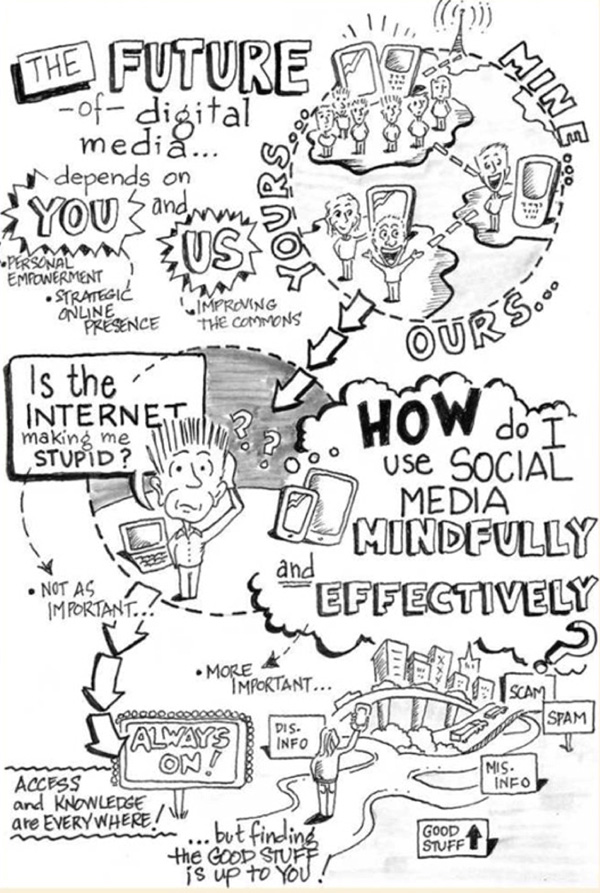 THE FUTURE
-of- digital
media...
depends on
YOU and
US
• PERSONAL
EMPOWERMENT
• STRATEGIC
ONLINE
PRESENCE
• IMPROVING
THE COMMONS
YOURS...
MINE...
OURS...
Is the
INTERNET
making me
STUPID?
? ?
HOW do I
use SOCIAL
MEDIA
MINDFULLY
and
EFFECTIVELY
?
• NOT AS
IMPORTANT...
• MORE
IMPORTANT...
ALWAYS
ON!
ACCESS
and KNOWLEDGE
are EVERYWHERE!
DIS-
INFO
SCAM
SPAM
MIS-
INFO
GOOD
STUFF
...but finding
the GOOD STUFF
is UP TO YOU!